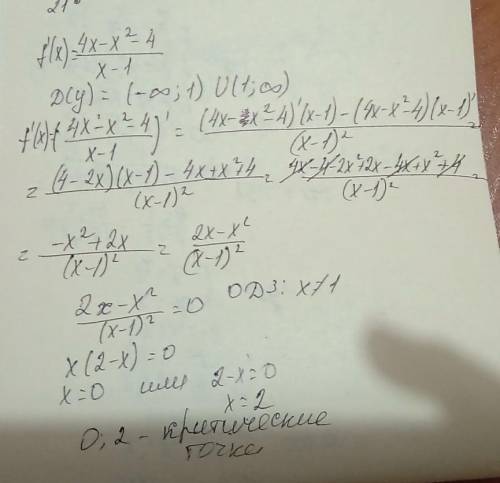 21
f'(x)=\frac{4x-x²-4}{x-1}
D(y) = (-∞; 1) U (1; ∞)
f'(x)=(\frac{4x-x²-4}{x-1})' = \frac{(4x-x²-4)'(x-1)-(4x-x²-4)(x-1)'}{(x-1)²} =
= \frac{(4-2x)(x-1)-4x+x²+4}{(x-1)²} = \frac{4x-4-2x²+2x-4x+x²+4}{(x-1)²} =
= \frac{-x²+2x}{(x-1)²} = \frac{2x-x²}{(x-1)²}
\frac{2x-x²}{(x-1)²} = 0 ОДЗ: x≠1
x(2-x)=0
x=0 или 2-x=0
x=2
0; 2 - критические
точки